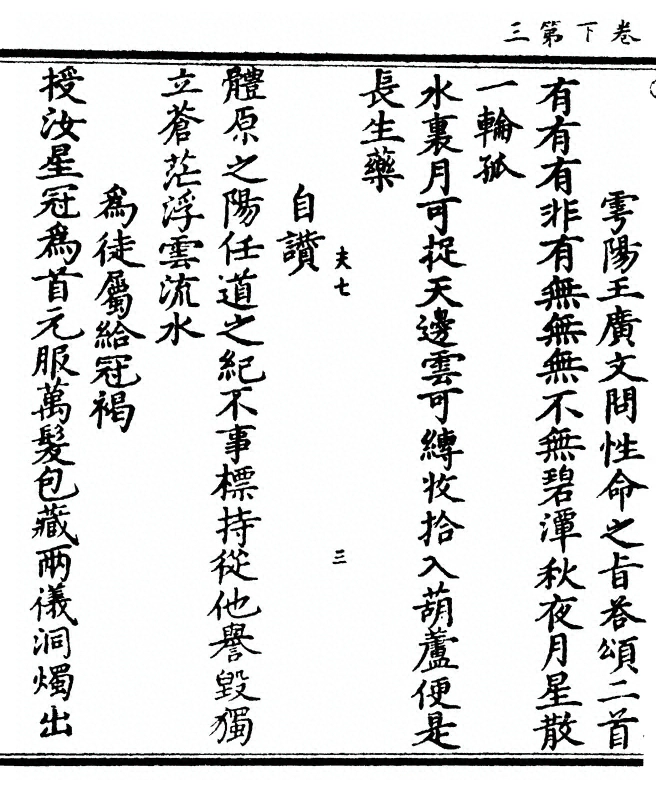 卷下第三
雩陽王廣文問性命之旨答頌二首
有有有非有無無無不無碧潭秋夜月星散
一輪孤
水裏月可捉天邊雲可縳收拾入葫蘆便是
長生藥
夫七
三
自讚
體原之陽任道之紀不事標持從他譽毀獨
立蒼茫浮雲流水
爲徒屬給冠褐
授汝星冠爲首元服萬髮包藏兩儀洞燭出